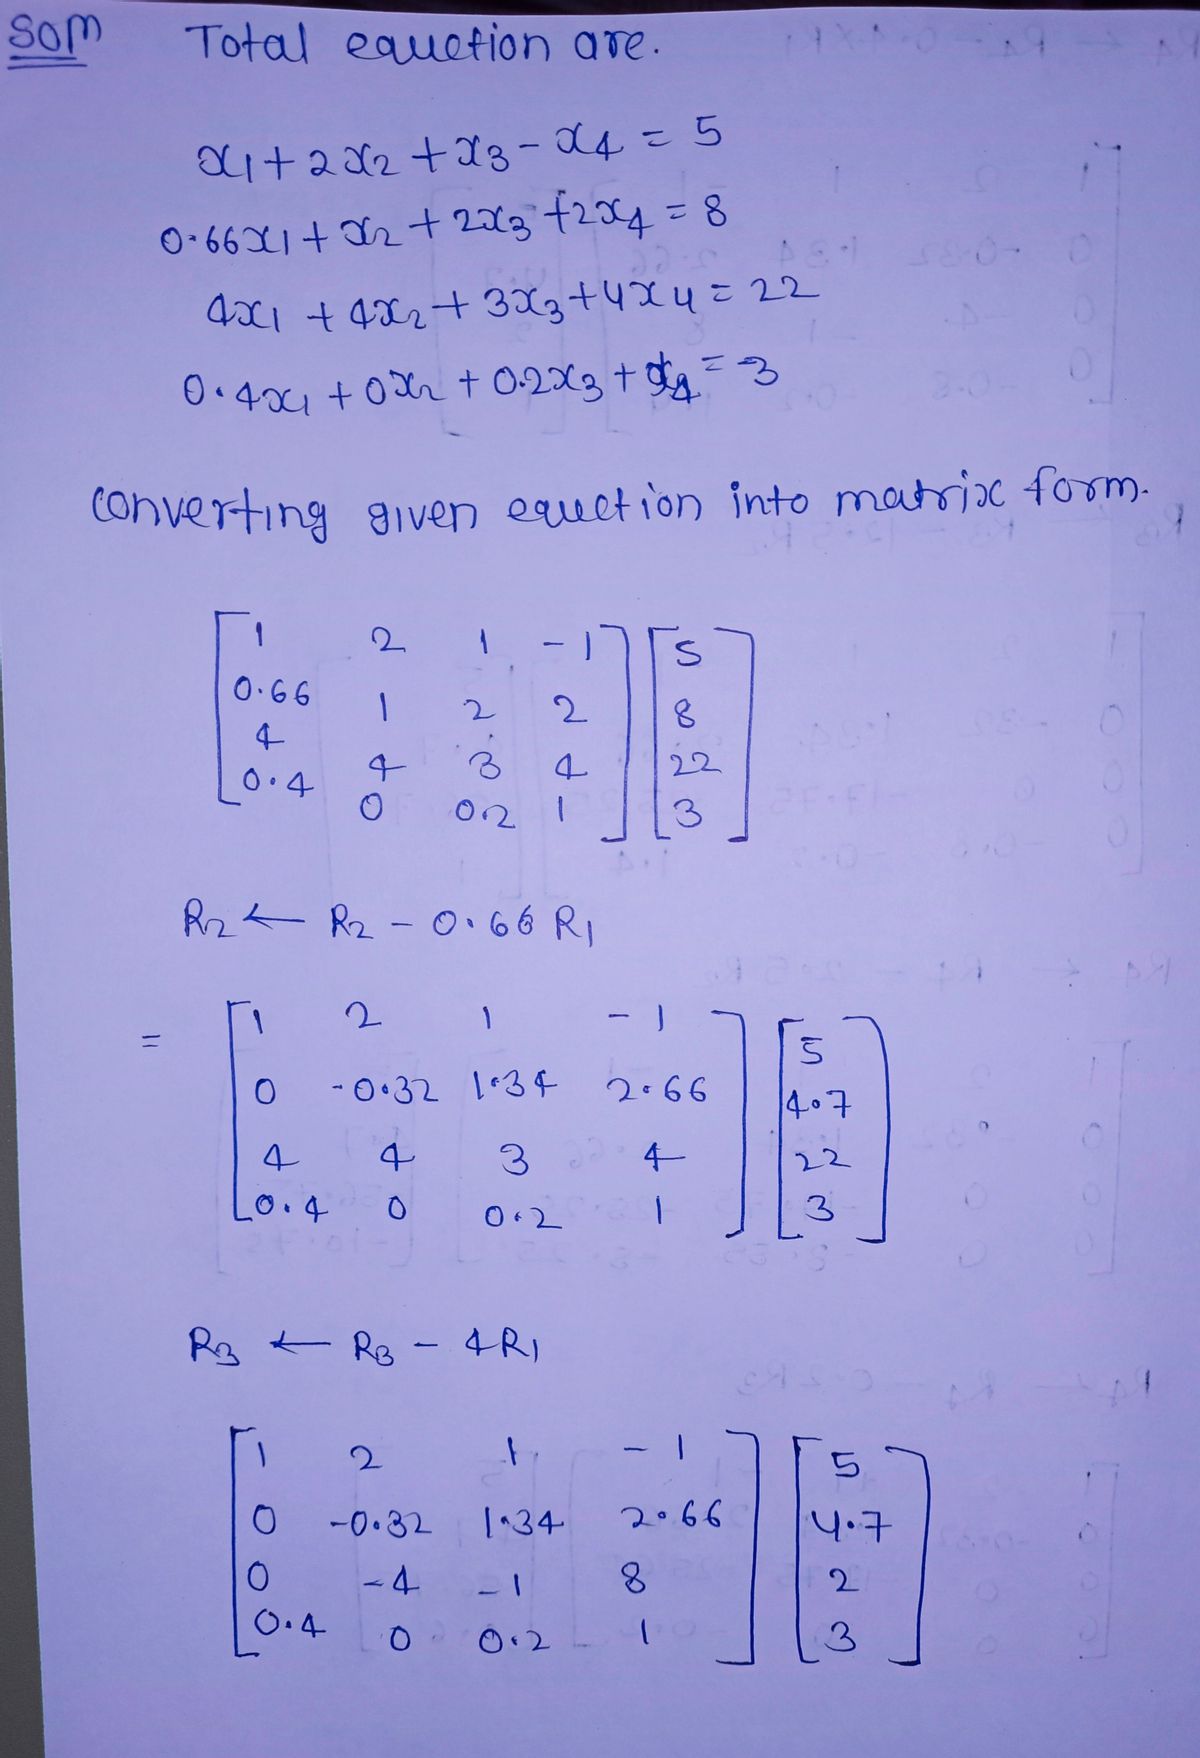 Soln Total equetion are.
x1 + 2x2 + x3 - x4 = 5
0.66x1 + x2 + 2x3 + 2x4 = 8
4x1 + 4x2 + 3x3 + 4x4 = 22
0.4x1 + 0x2 + 0.2x3 + x4 = 3
converting given equetion into matrix form.
1 2 1 -1 5
0.66 1 2 2 8
4 4 3 4 22
0.4 0 0.2 1 3
R2 ← R2 - 0.66 R1
= 1 2 1 -1 5
0 -0.32 1.34 2.66 4.7
4 4 3 4 22
0.4 0 0.2 1 3
R3 ← R3 - 4R1
1 2 1 -1 5
0 -0.32 1.34 2.66 4.7
0 -4 -1 8 2
0.4 0 0.2 1 3